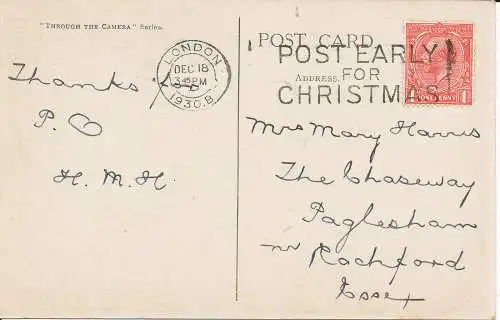 "THROUGH THE CAMERA" Series.
POST CARD
ADDRESS.
LONDON
DEC 18
1930.B
POST EARLY
FOR
CHRISTMAS
ONE PENNY
Thanks
P.
H. M. H.
Mrs Mary Harris
The Chaseway
Paglesham
nr Rochford
Essex